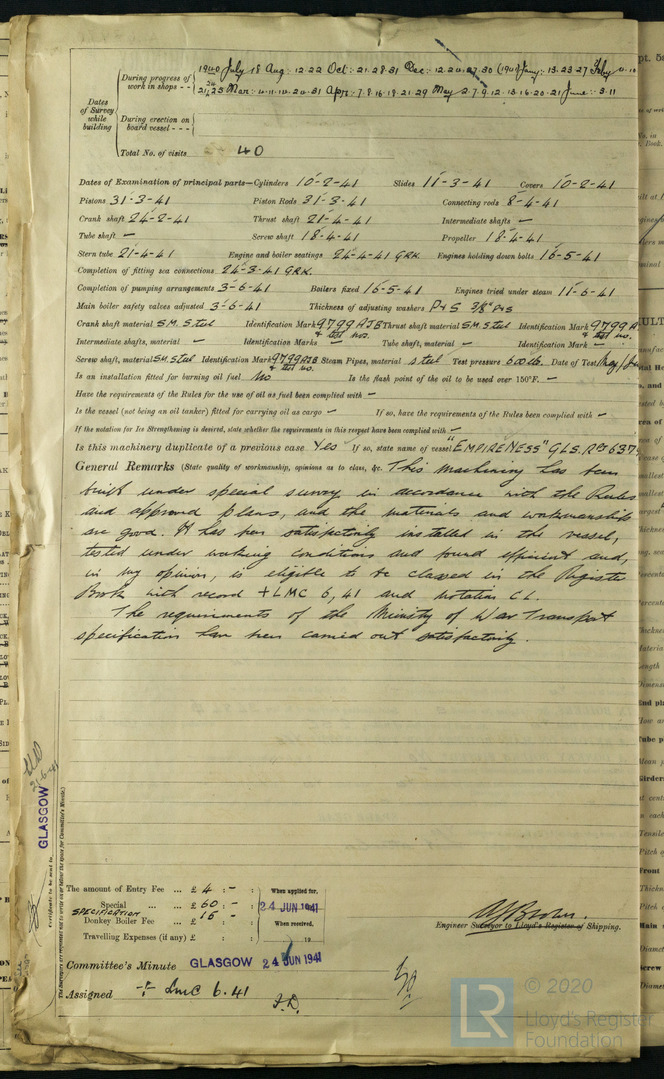 1940 July 18 Aug: 12.22 Oct: 21.28.31 Dec: 12.20.27.30 (1941) Jany: 13.23 27 Feby 4.10
During progress of work in shops - -
21.25 Mar: 4.11.14.20.31 Apr: 7.8.16.18.21.29 May 2.7.9.12.13.16.20.21 June: 3.11
Dates of Survey while building
During erection on board vessel - - -
Total No. of visits 40
Dates of Examination of principal parts—Cylinders 10-2-41 Slides 11-3-41 Covers 10-2-41
Pistons 31-3-41 Piston Rods 31-3-41 Connecting rods 8-4-41
Crank shaft 24-2-41 Thrust shaft 21-4-41 Intermediate shafts —
Tube shaft — Screw shaft 18-4-41 Propeller 18-4-41
Stern tube 21-4-41 Engine and boiler seatings 24-4-41 GRK. Engines holding down bolts 16-5-41
Completion of fitting sea connections 24-3-41 GRK.
Completion of pumping arrangements 3-6-41 Boilers fixed 16-5-41 Engines tried under steam 11-6-41
Main boiler safety valves adjusted 3-6-41 Thickness of adjusting washers P+S 3/8" P+S
Crank shaft material S.M. Steel Identification Mark 9799 AJB & test nos. Thrust shaft material S.M. Steel Identification Mark 9799 A & test no.
Intermediate shafts, material — Identification Marks — Tube shaft, material — Identification Mark —
Screw shaft, material S.M Steel Identification Mark 9799 AJB & test no. Steam Pipes, material steel Test pressure 600 lb. Date of Test May/June
Is an installation fitted for burning oil fuel No Is the flash point of the oil to be used over 150°F. —
Have the requirements of the Rules for the use of oil as fuel been complied with —
Is the vessel (not being an oil tanker) fitted for carrying oil as cargo — If so, have the requirements of the Rules been complied with —
If the notation for Ice Strengthening is desired, state whether the requirements in this respect have been complied with —
Is this machinery duplicate of a previous case Yes If so, state name of vessel "EMPIRE NESS" GLS. Rpt 637
General Remarks (State quality of workmanship, opinions as to class, &c. This Machinery has been
built under special survey in accordance with the Rules
and approved plans, and the materials and workmanship
are good. It has been satisfactorily installed in the vessel,
tested under working conditions and found efficient and,
in my opinion, is eligible to be classed in the Register
Book with record + LMC 6,41 and notation CL.
The requirements of the Ministry of War Transport
specification have been carried out satisfactorily.
GLASGOW
Certificate to be sent to
The Surveyors are requested not to write on or below the space for Committee's Minute.)
The amount of Entry Fee ... £ 4 : - : When applied for,
Special ... £ 60 : - : 24 JUN 1941
SPECIFICATION
Donkey Boiler Fee ... £ 15 : - : When received,
Travelling Expenses (if any) £ : : 19
AJ Brown.
Engineer Surveyor to Lloyd's Register of Shipping.
Committee's Minute GLASGOW 24 JUN 1941
Assigned + LMC 6.41
© 2020
LR
Lloyd's Register
Foundation